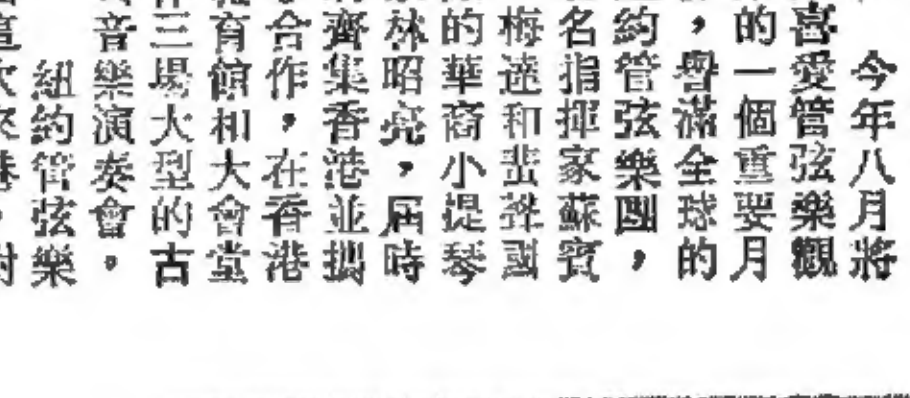 今年八月將
喜愛管弦樂觀
的一個重要月
，譽滿全球的
約管弦樂團，
名指揮家蘇賓
梅達和蜚聲國
的華裔小提琴
林昭亮，屆時
齊集香港並攜
合作，在香港
育館和大會堂
三場大型的古
音樂演奏會。
紐約管弦樂